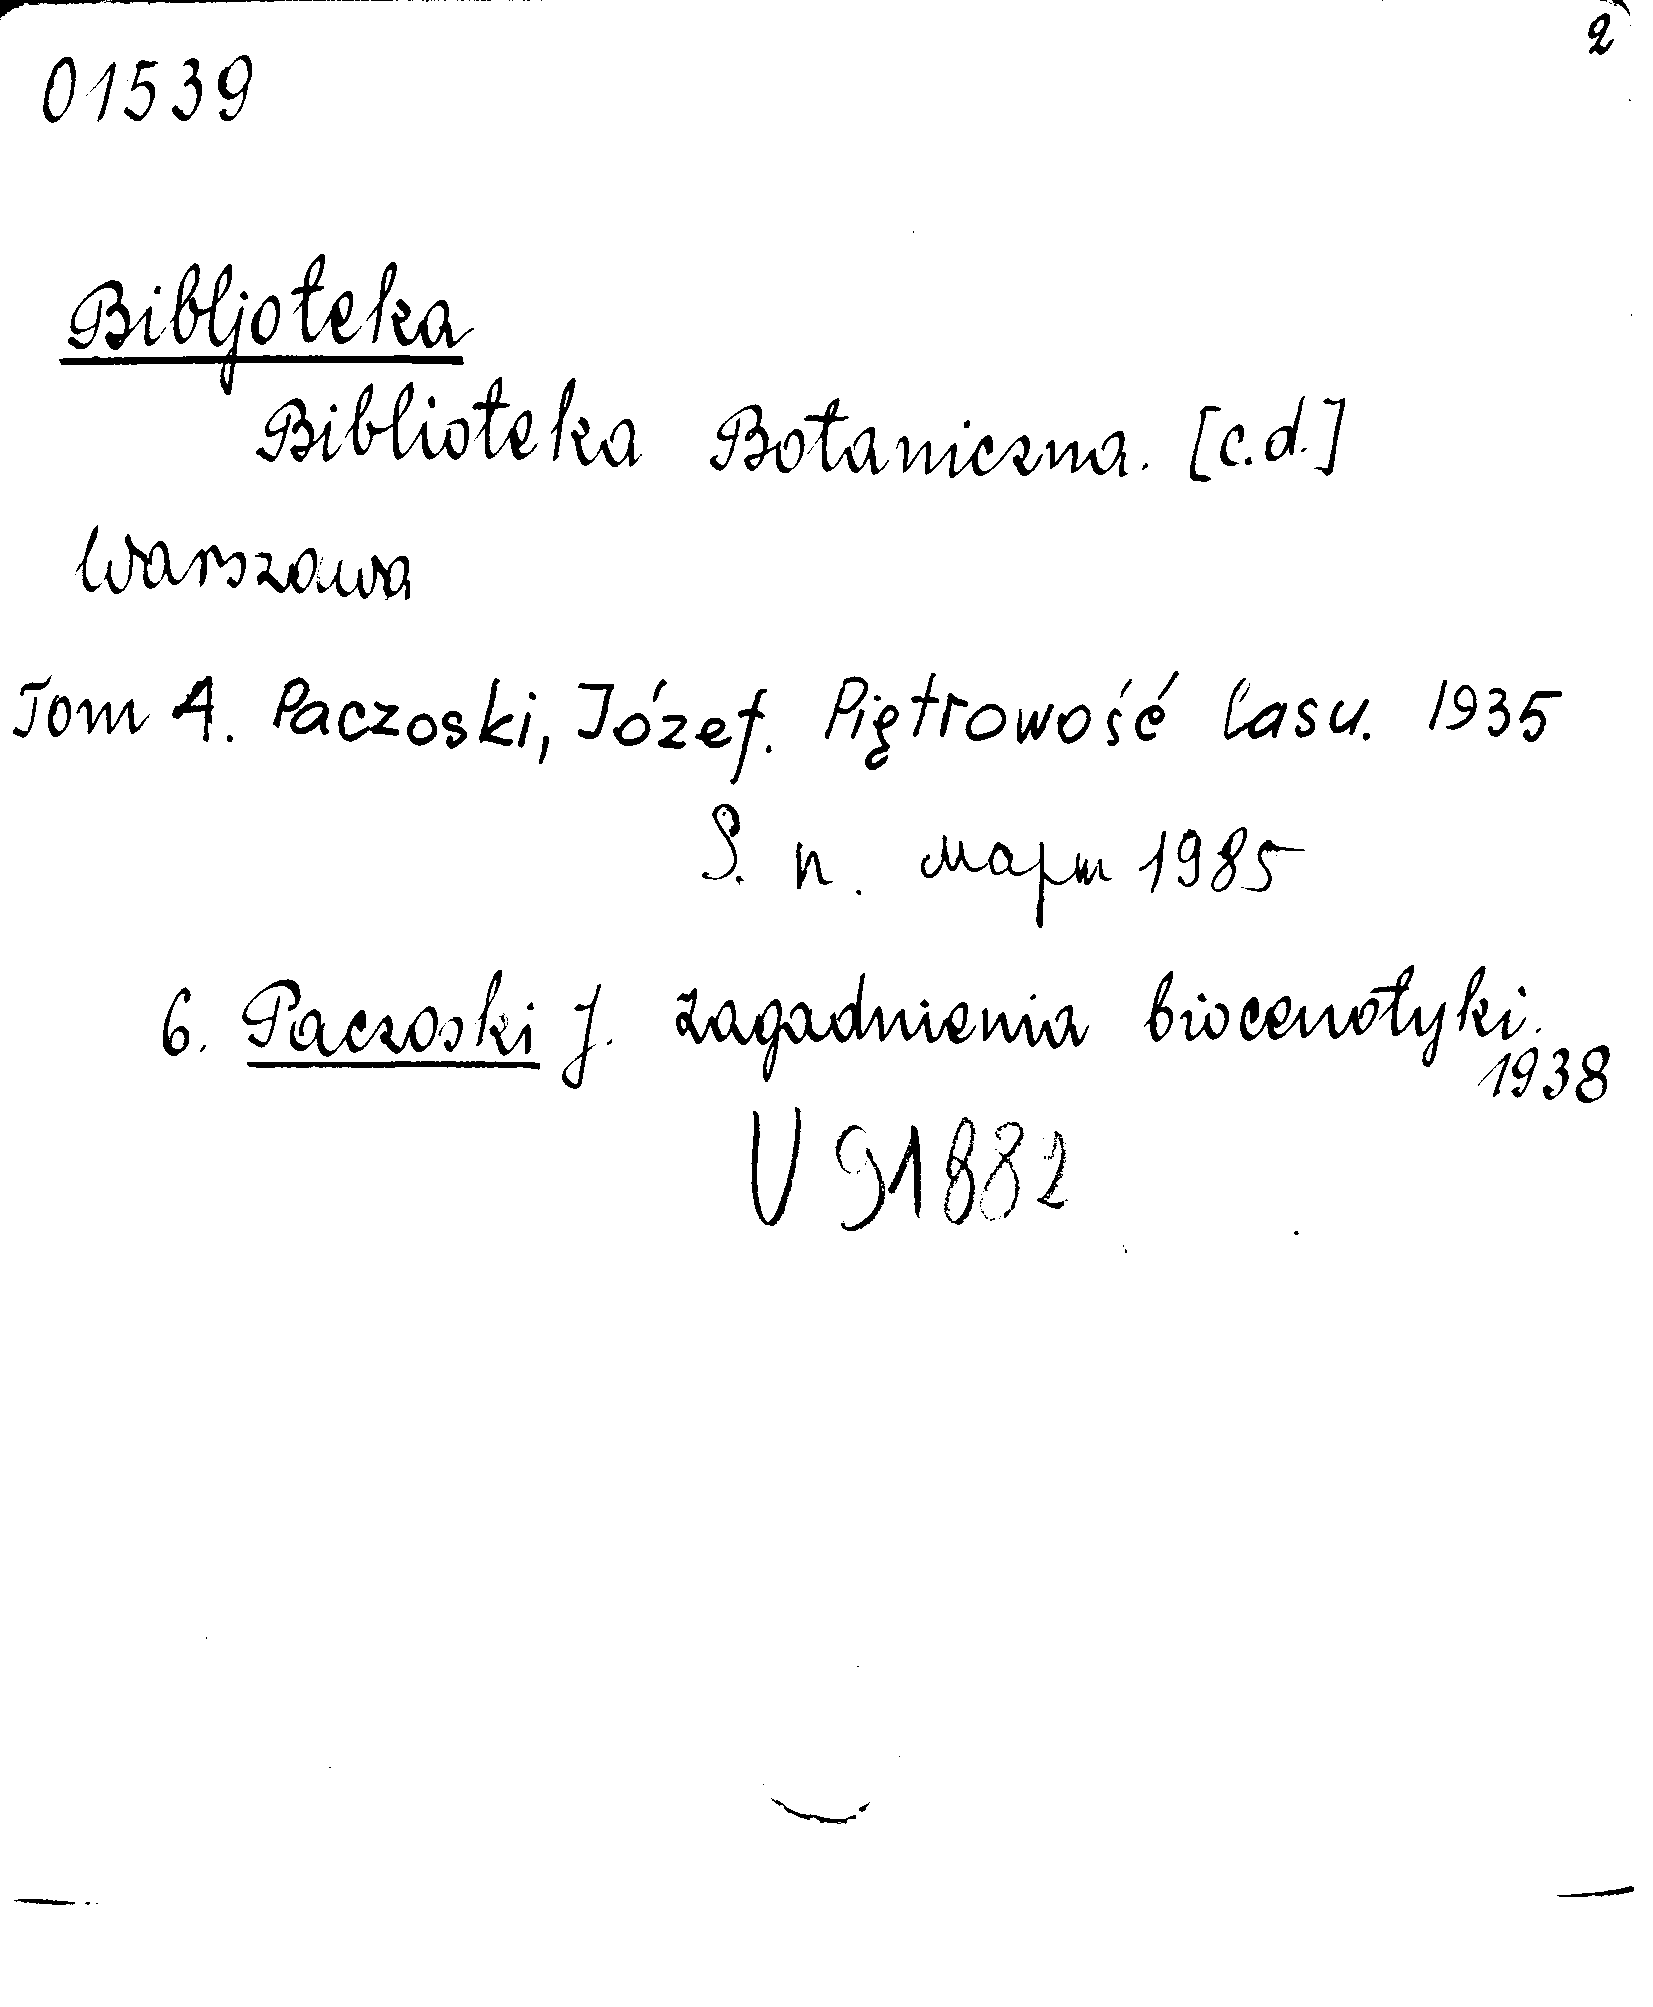 2
01539
Bibljoteka
Biblioteka Botaniczna. [c.d.]
Warszawa
Tom 4. Paczoski, Józef. Piętrowość lasu. 1935
S. n. март 1985
6. Paczoski J. Zagadnienia biocenotyki.
1938
V 91882